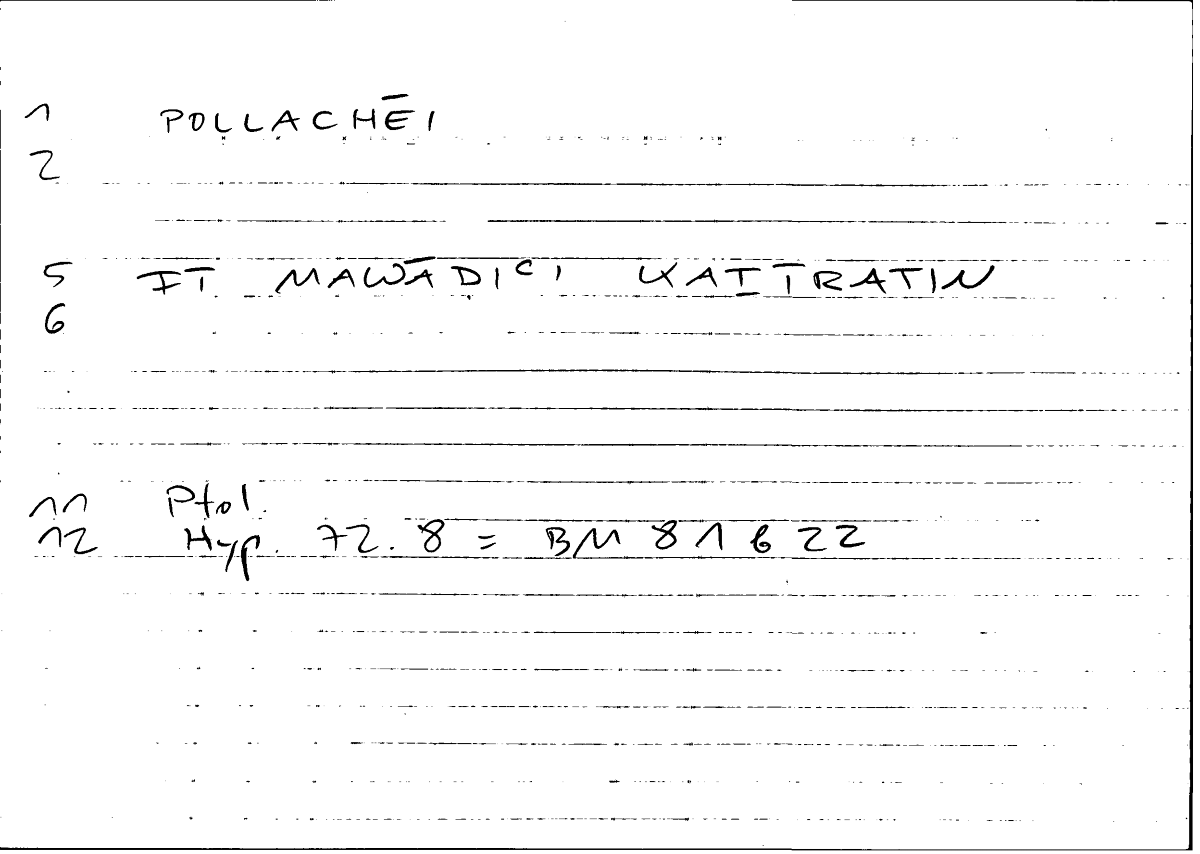 1 POLLACHĒI
2
5 IT MAWĀDICI KAITRATIN
6
11 Ptol.
12 Hyp. 72.8 = BM 81622